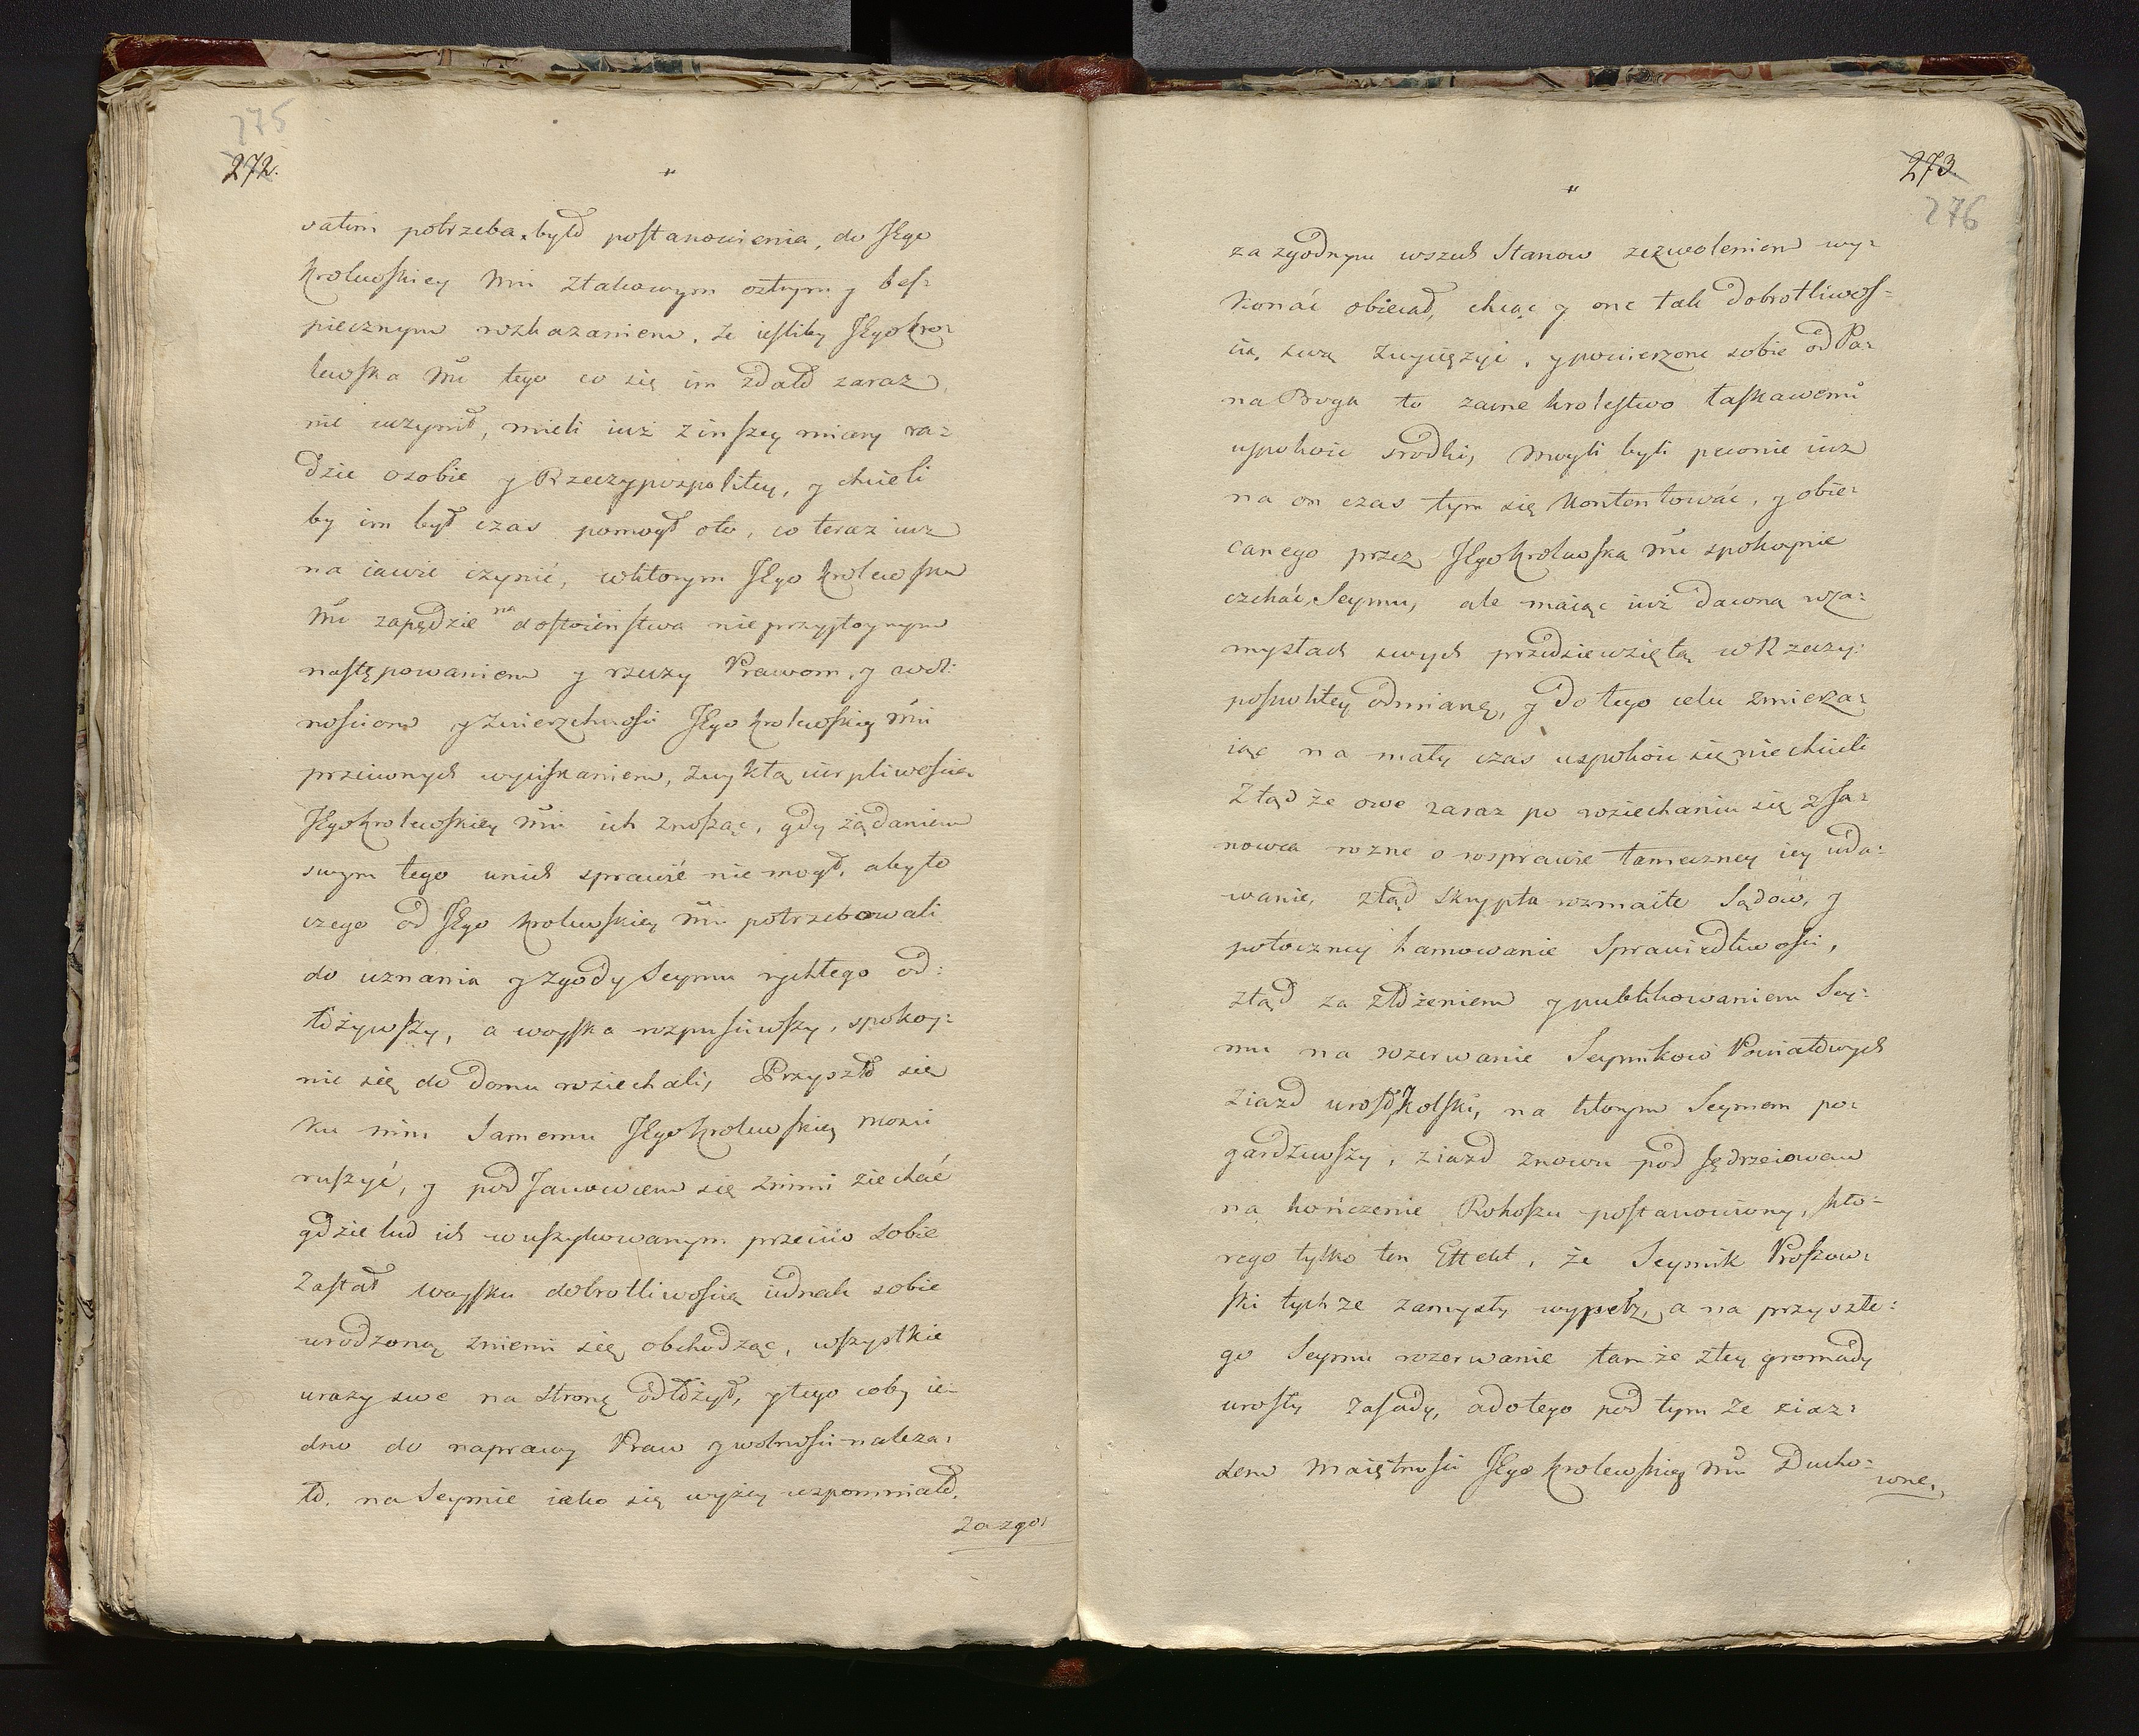 275
272.
"
vatim potrzeba byłó postanowienia, do JEgo
Krolewskiey Mci ztakowym oztrym y bes=
piecznym rozkazaniem, że iestliby JEgo Kro=
lewska Mć tego co się im zdało zaraz
nie uczynił, mieli iuż z inszey miary ra=
dzie osobie y Rzeczypospolitey, y chcieli
by im był czas pomogł oto, co teraz iuz
na iawie czynić, wktorym JEgo Krolewska
Mć zapędzie na dostoieństwa nieprzystoynym
następowaniem y rzeczy Prawom, y wol:
nościom y zwierzchności JEgo Krolewskiey Mci
przeciwnych wyciskaniem, zwykłą cierpliwością
JEgo Krolewskiey Mci ich znosząc, gdy żądaniem
swym tego unich sprawić nie mogł, aby to
czego od JEgo Krolewskiey Mci potrzebowali
do uznania y zgody Seymu rychłego od:
łożywszy, a woyska rozpusciwszy, spokoy:
nie się do domu roziechali, Przyszło się
ku nim Samemu JEgo Krolewskiey Mosci
ruszyć, y pod Janowcem się znimi ziechać
gdzie lud ich wuszykowanym przeciw sobie
Zastał woysku dobrotliwoscią iednak sobie
urodzoną zniemi się obchodząc, wszystkie
urazy swe na stronę odłożył, y tego coby ie=
dno do naprawy Praw y wolności należa=
ło, na Seymie iako się wyżey wspomniało,
za zgo=
273.
276
"
za zgodnym wszech Stanow zezwoleniem wy=
konać obiecał, chcąc y one tak dobrotliwos=
cią, swą zwycięzyć, y powierzone sobie od Pa=
na Boga to zacne krolestwo łaskawemi
uspokoić srodki, Mogli byli pewnie iuz
na on czas tym się kontentować, y obie=
canego przez JEgo Krolewską Mć spokoynie
czekać Seymu, ale maiąc iuż dawną wza=
mysłach swych przedsiewziętą w Rzeczy:
pospolitey odmianę, y do tego celu zmierza=
iąc na mały czas uspokoić się nie chcieli
Ztąd że owe zaraz po roziechaniu się z Ja=
nowca rozne o rosprawie tameczney iey uda:
wanie, ztąd skrypta rozmaite Sądow, y
potoczney hamowanie Sprawiedliwości,
ztąd za złożeniem y publikowaniem Sey:
mu na rozerwanie Seymikow Powiatowych
Ziazd urosł Kolski, na ktorym Seymem po=
gardziwszy, ziazd znowu pod Jędrzeiowem
na kończenie Rokoszu postanowiony, kto=
rego tylko ten Effekt, że Seymik Proszow=
ski tychze zamysły wypełz, a na przyszłe:
go Seymu rozerwanie tam że złey gromady
urosły Zasady, a do tego pod tym Ze ziaz=
dem Maiętności JEgo Krolewskiey Mci Ducho=
wne,